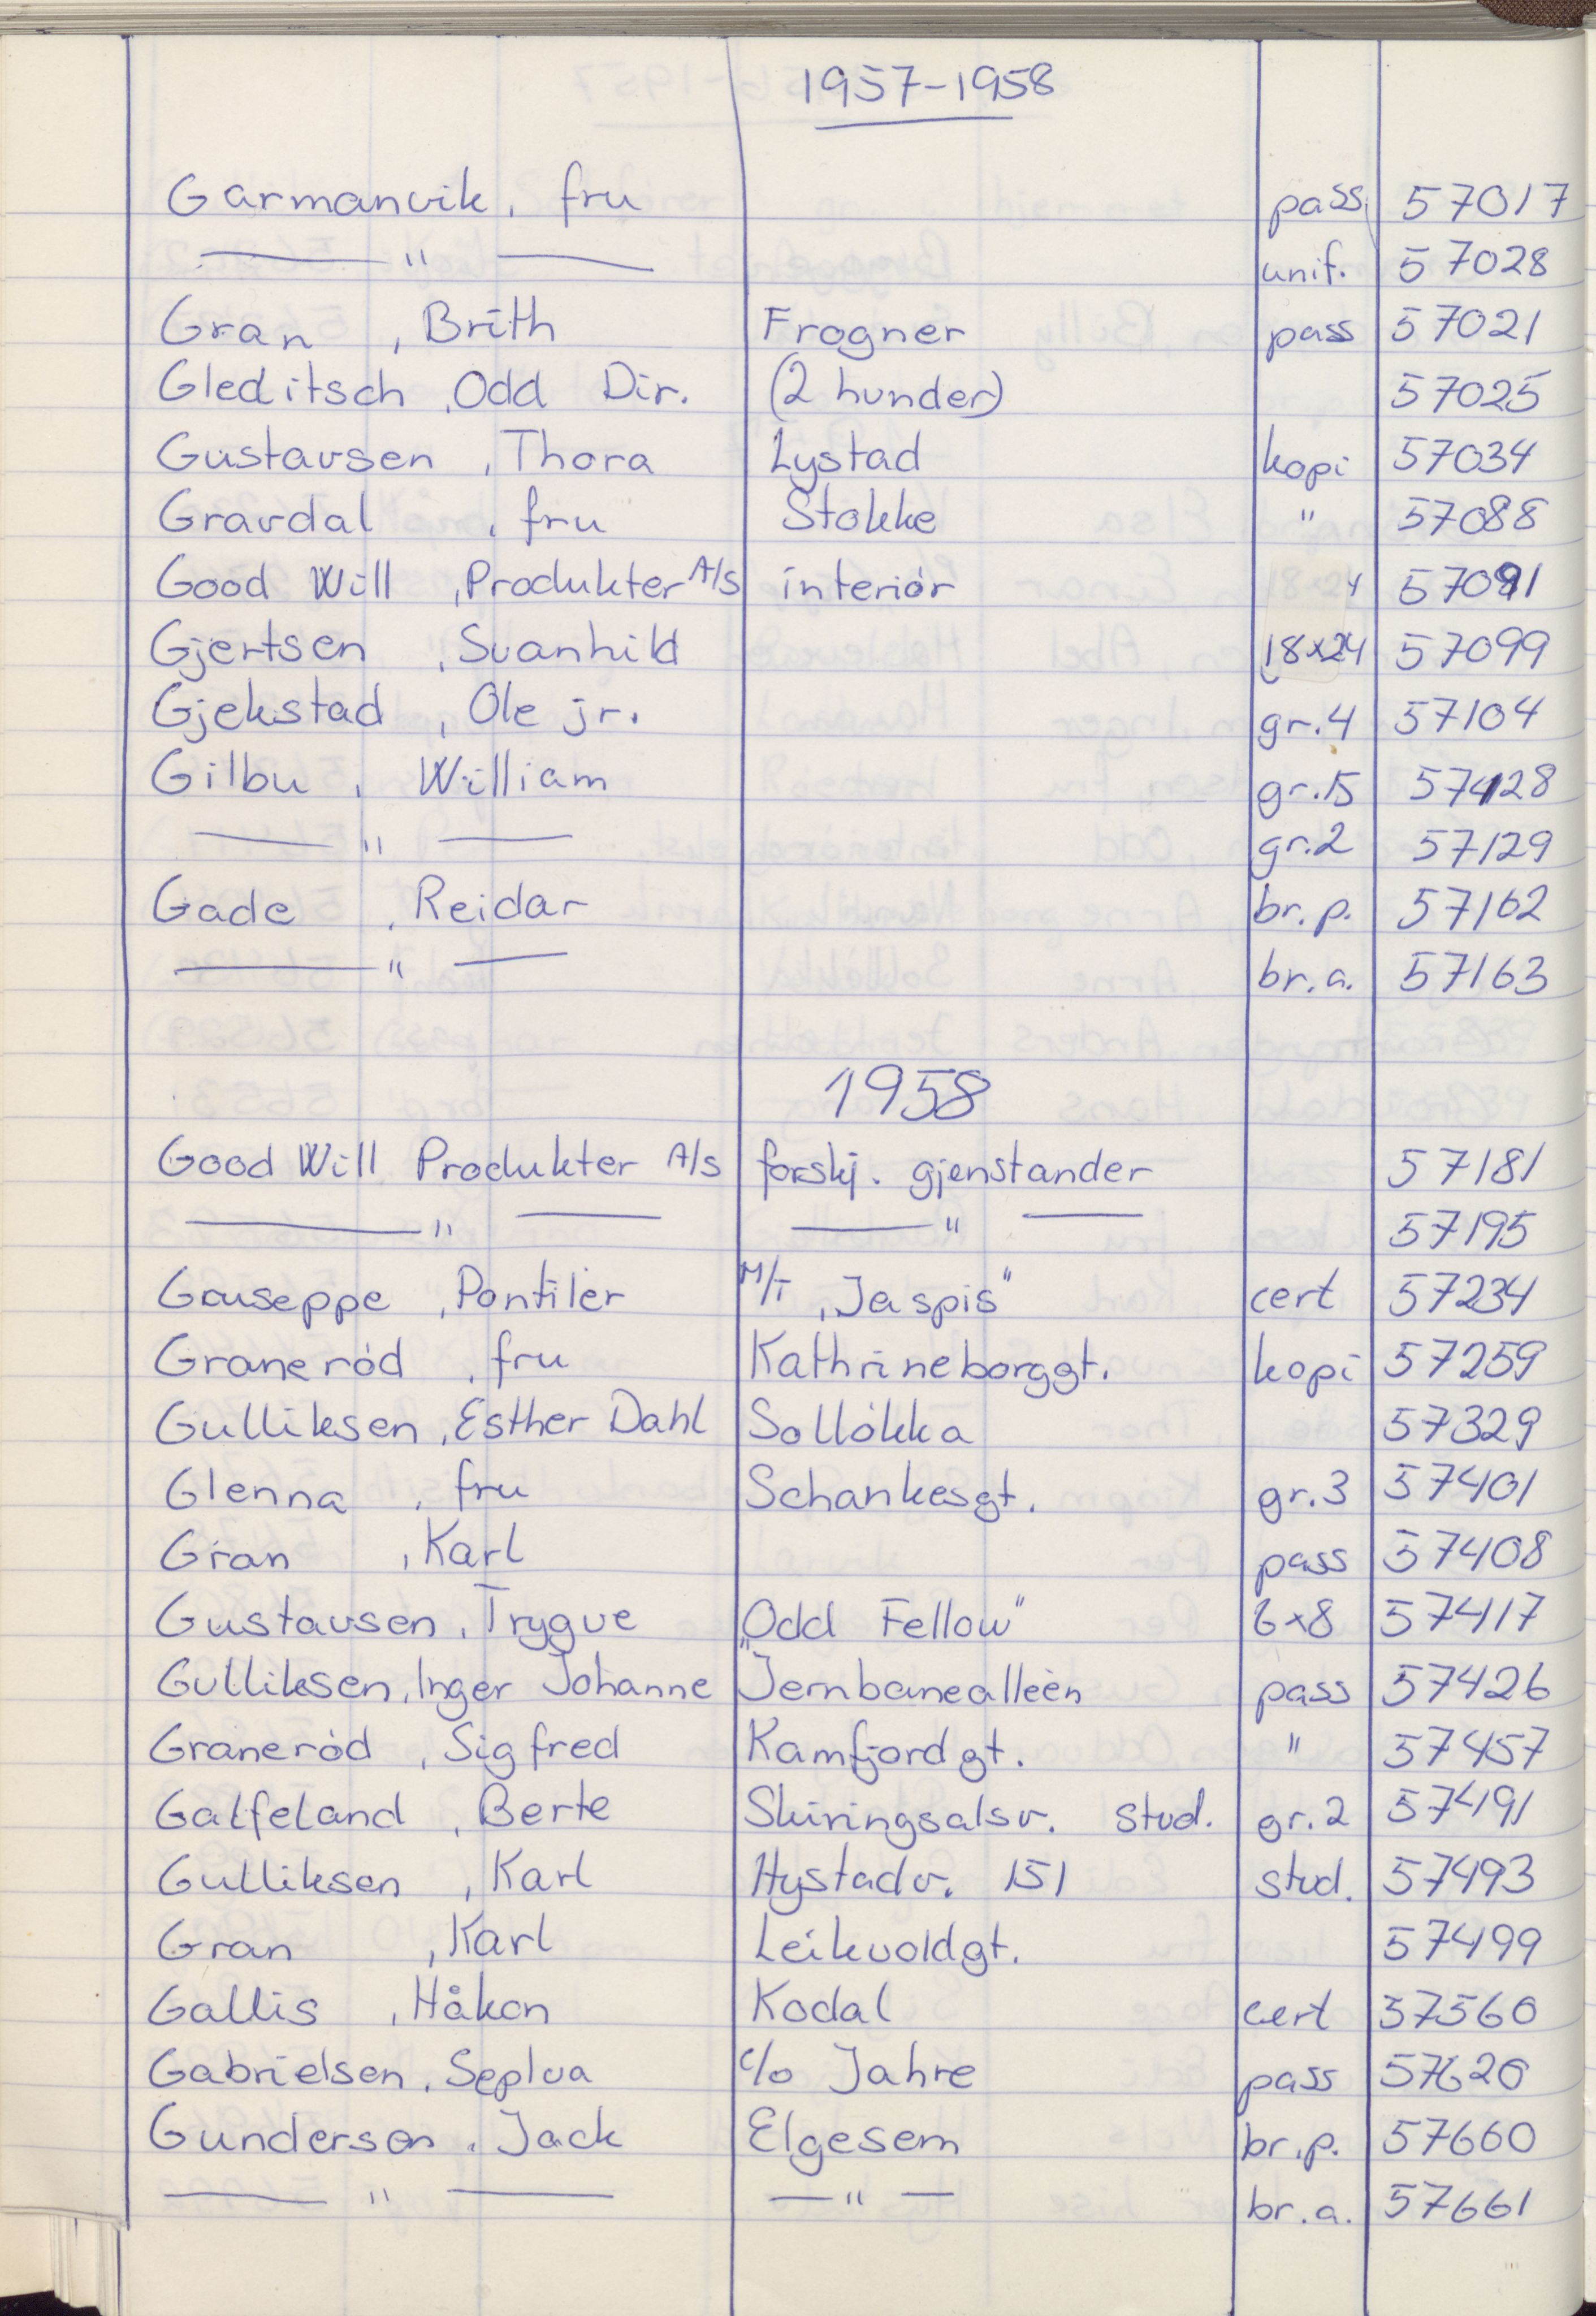 1957-1958
Garmanvik, fru pass. 57017
—— " —— unif. 57028
Gran, Brith Frogner pass 57021
Gleditsch, Odd Dir. (2 hunder) 57025
Gustavsen, Thora Lystad kopi 57034
Gravdal, fru Stokke " 57088
Good Will, Produkter A/S interiør 18x24 57091
Gjertsen, Svanhild 18x24 57099
Gjekstad, Ole jr. gr.4 57104
Gilbu, William gr.15 57128
—— " —— gr.2 57129
Gade, Reidar br.p. 57162
—— " —— br.a. 57163
1958
Good Will Produkter A/S forskj. gjenstander 57181
—— " —— —— " —— 57195
Gouseppe, Pontiler M/T „Jaspis" cert 57234
Granerød, fru Kathrineborggt. kopi 57259
Gulliksen, Esther Dahl Solløkka 57329
Glenna, fru Schankesgt. gr.3 57401
Gran, Karl pass 57408
Gustavsen, Trygve „Odd Fellow" 6x8 57417
Gulliksen, Inger Johanne Jernbanealleèn pass 57426
Granerød, Sigfred Kamfjordgt. " 57457
Gatfeland, Berte Skiringsalsv. stud. gr.2 57491
Gulliksen, Karl Hystadv. 151 stud. 57493
Gran, Karl Leikvoldgt. 57499
Gallis, Håkon Kodal cert 57560
Gabrielsen, Seplva c/o Jahre pass 57620
Gunderson, Jack Elgesem br.p. 57660
—— " —— — " — br.a. 57661